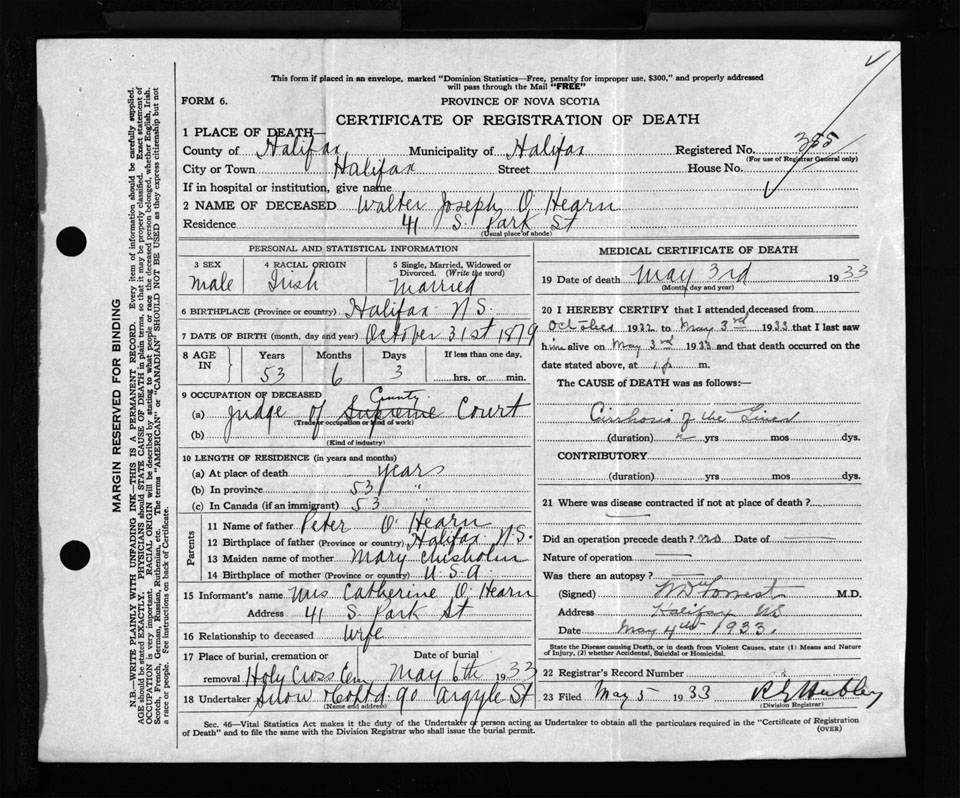 This form if placed in an envelope, marked "Dominion Statistics—Free, penalty for improper use, $300," and properly addressed
will pass through the Mail "FREE"
FORM 6.
PROVINCE OF NOVA SCOTIA
CERTIFICATE OF REGISTRATION OF DEATH
1 PLACE OF DEATH—
County of Halifax Municipality of Halifax Registered No. 355
(For use of Registrar General only)
City or Town Halifax Street House No.
If in hospital or institution, give name
2 NAME OF DECEASED Walter Joseph O'Hearn
Residence 41 S. Park St
(Usual place of abode)
PERSONAL AND STATISTICAL INFORMATION
3 SEX 4 RACIAL ORIGIN 5 Single, Married, Widowed or
Divorced. (Write the word)
Male Irish Married
6 BIRTHPLACE (Province or country) Halifax N.S.
7 DATE OF BIRTH (month, day and year) October 31st 1879
8 AGE IN Years Months Days If less than one day,
53 6 3 hrs. or min.
9 OCCUPATION OF DECEASED County
(a) Judge of Supreme Court
(Trade or occupation or kind of work)
(b)
(Kind of industry)
10 LENGTH OF RESIDENCE (in years and months)
(a) At place of death years
(b) In province 53 "
(c) In Canada (if an immigrant) 53 "
Parents
11 Name of father Peter O'Hearn
12 Birthplace of father (Province or country) Halifax N.S.
13 Maiden name of mother Mary Chisholm
14 Birthplace of mother (Province or country) U.S.A.
15 Informant's name Mrs Catherine O'Hearn
Address 41 S. Park St
16 Relationship to deceased Wife
17 Place of burial, cremation or Date of burial
removal Holy Cross Cem May 6th 1933
18 Undertaker Snow & Co Ltd. 90 Argyle St
(Name and address)
MEDICAL CERTIFICATE OF DEATH
19 Date of death May 3rd 1933
(Month, day and year)
20 I HEREBY CERTIFY that I attended deceased from
October 1932 to May 3rd 1933 that I last saw
him alive on May 3rd 1933 and that death occurred on the
date stated above, at 1 p m.
The CAUSE OF DEATH was as follows:—
Cirrhosis of the Liver
(duration) yrs mos dys.
CONTRIBUTORY
(duration) yrs mos dys.
21 Where was disease contracted if not at place of death?
Did an operation precede death? no Date of —
Nature of operation —
Was there an autopsy? —
(Signed) M.D.
Address Halifax NS
Date May 4th 1933.
State the Disease causing Death, or in death from Violent Causes, state (1) Means and Nature
of Injury, (2) whether Accidental, Suicidal or Homicidal.
22 Registrar's Record Number
23 Filed May 5 1933 R E Hubley
(Division Registrar)
Sec. 46—Vital Statistics Act makes it the duty of the Undertaker or person acting as Undertaker to obtain all the particulars required in the "Certificate of Registration
of Death" and to file the same with the Division Registrar who shall issue the burial permit.
(OVER)
MARGIN RESERVED FOR BINDING
N.B.—WRITE PLAINLY WITH UNFADING INK—THIS IS A PERMANENT RECORD. Every item of information should be carefully supplied.
AGE should be stated EXACTLY. PHYSICIANS should STATE CAUSE OF DEATH in plain terms, so that it may be properly classified. Exact statement of
OCCUPATION is very important. RACIAL ORIGIN will be described by stating to what people or race the deceased person belonged, whether English, Irish,
Scotch, French, German, Russian, Ruthenian, etc. The terms "AMERICAN" or "CANADIAN" SHOULD NOT BE USED as they express citizenship but not
a race or people. See instructions on back of Certificate.